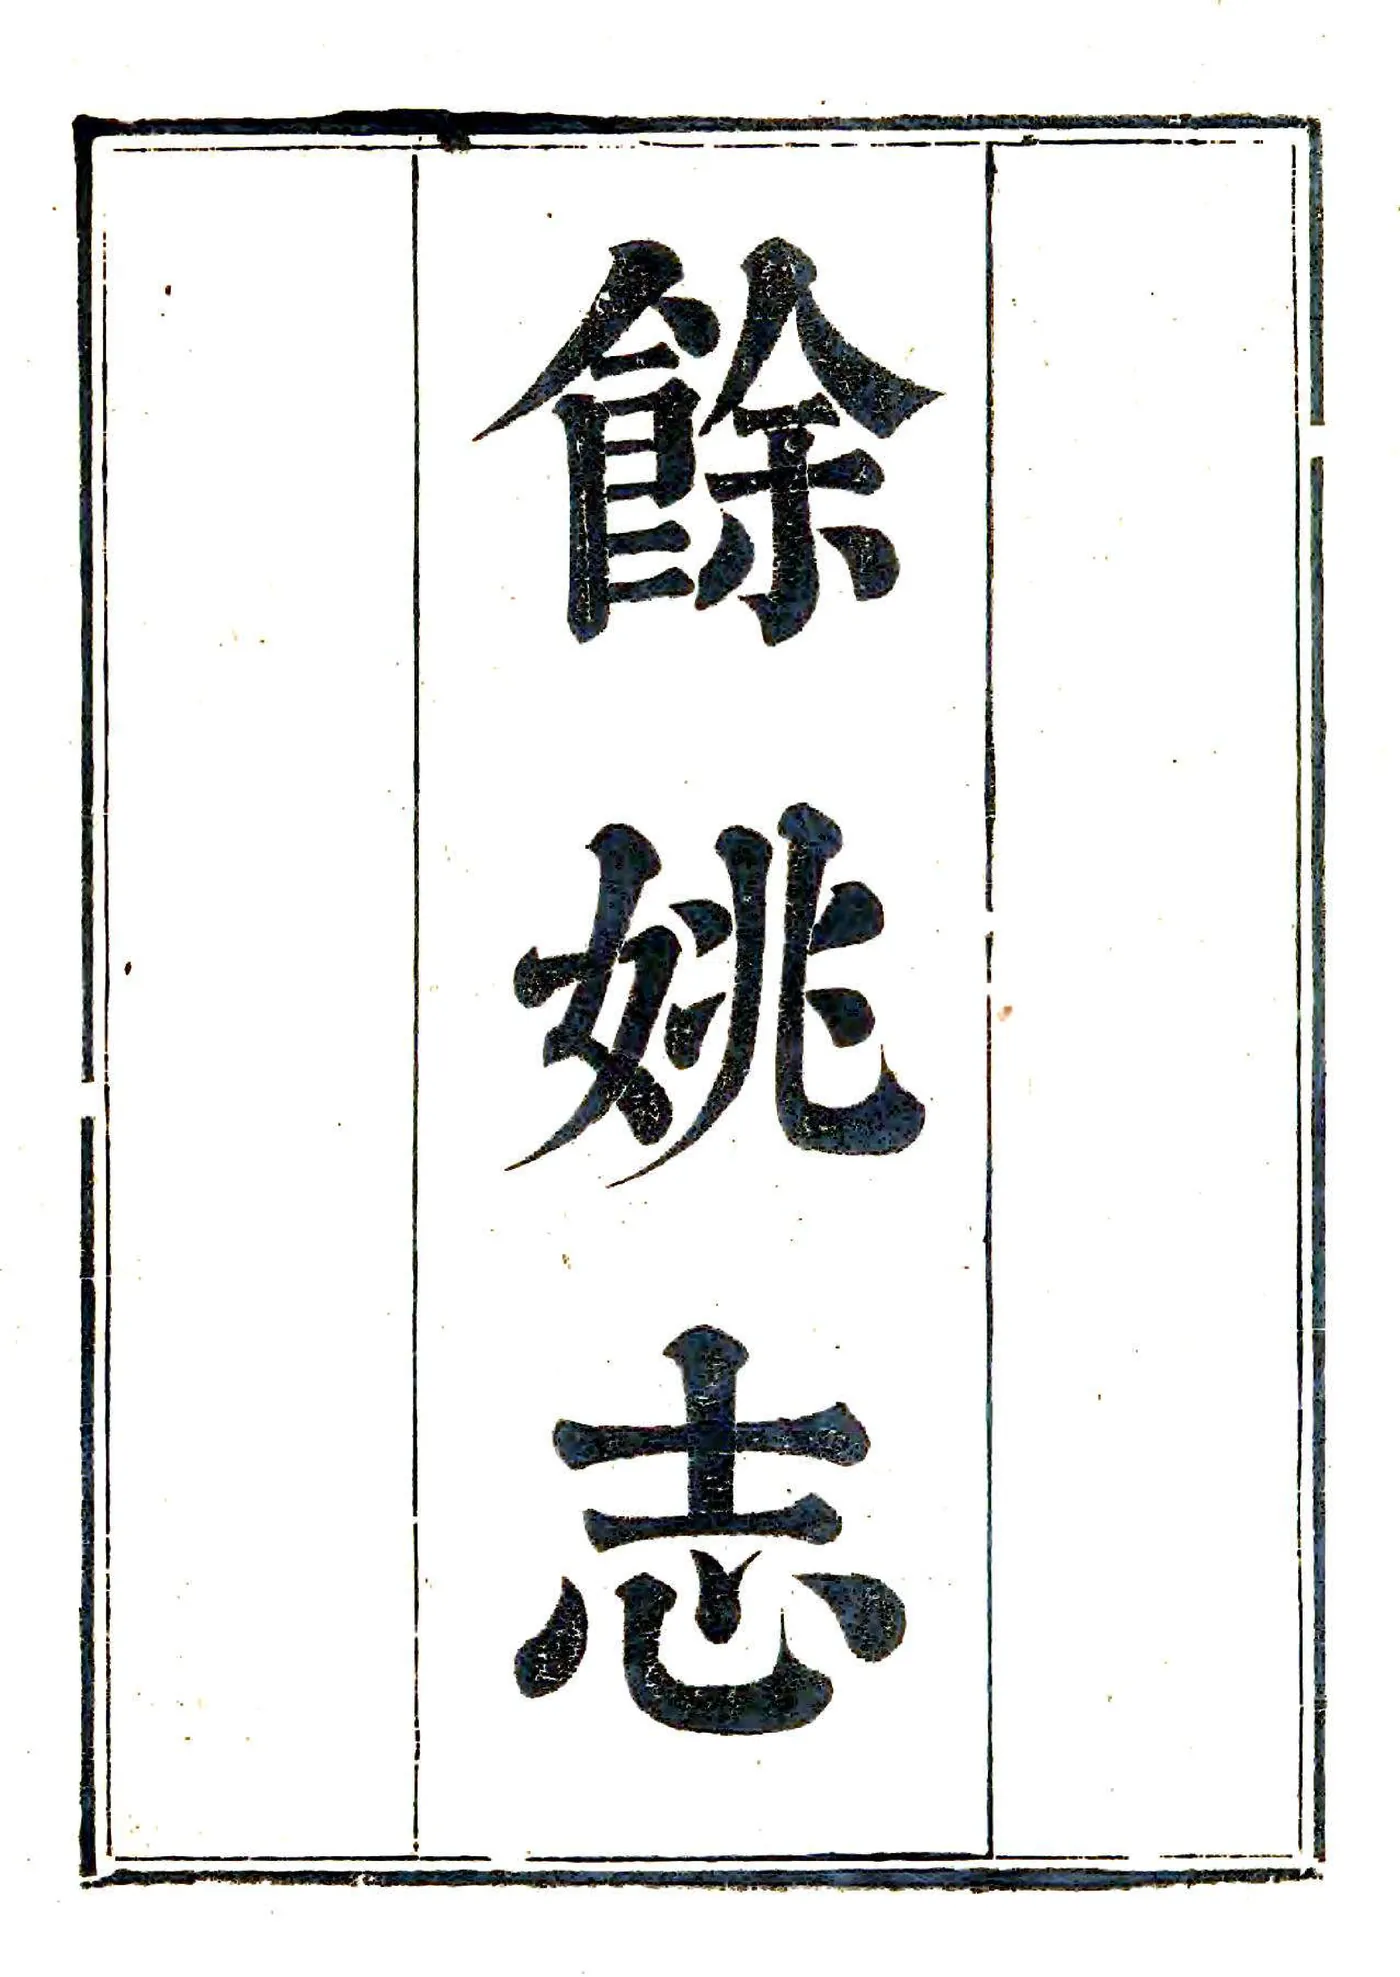 餘姚志